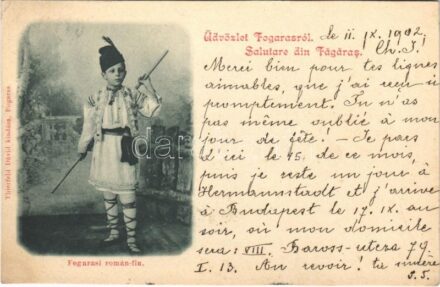 Üdvözlet Fogarasról.
Salutare din Făgăraş.
le 11. IX. 1902.
Ch. I.!
Merci bien pour tes lignes
aimables, que j'ai reçu si
promptement. Tu n'as
pas même oublié à mon
jour de fête! - Je pars
d'ici le 15. de ce mois,
puis je reste un jour à
Hermannstadt et j'arrive
à Budapest le 17. IX. au
soir, où mon domicile
sera: VIII. Baross-utcza 79.
I. 13. Au revoir! ta
Thierfeld Dávid kiadása, Fogaras
Fogarasi román-fiu.
darabanth